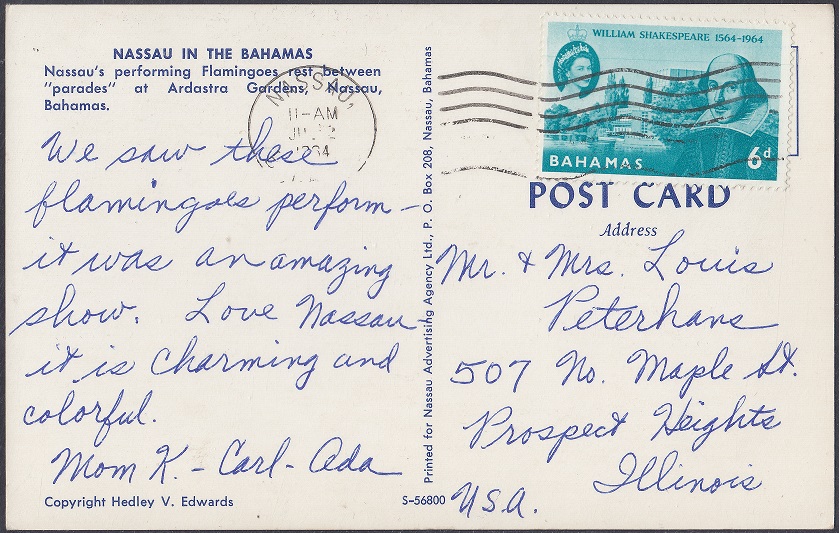 NASSAU IN THE BAHAMAS
Nassau's performing Flamingoes rest between
"parades" at Ardastra Gardens, Nassau,
Bahamas.
NASSAU,
11-AM
1964
We saw these
flamingoes perform -
it was an amazing
show. Love Nassau -
it is charming and
colorful.
Mom K. - Carl - Ada
Copyright Hedley V. Edwards
S-56800
Printed for Nassau Advertising Agency Ltd., P. O. Box 208, Nassau, Bahamas
WILLIAM SHAKESPEARE 1564-1964
BAHAMAS 6d
POST CARD
Address
Mr. & Mrs. Louis
Peterhans
507 No. Maple St.
Prospect Heights
Illinois
U.S.A.